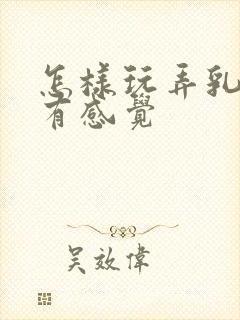 怎樣玩弄乳
有感覺
吴效偉